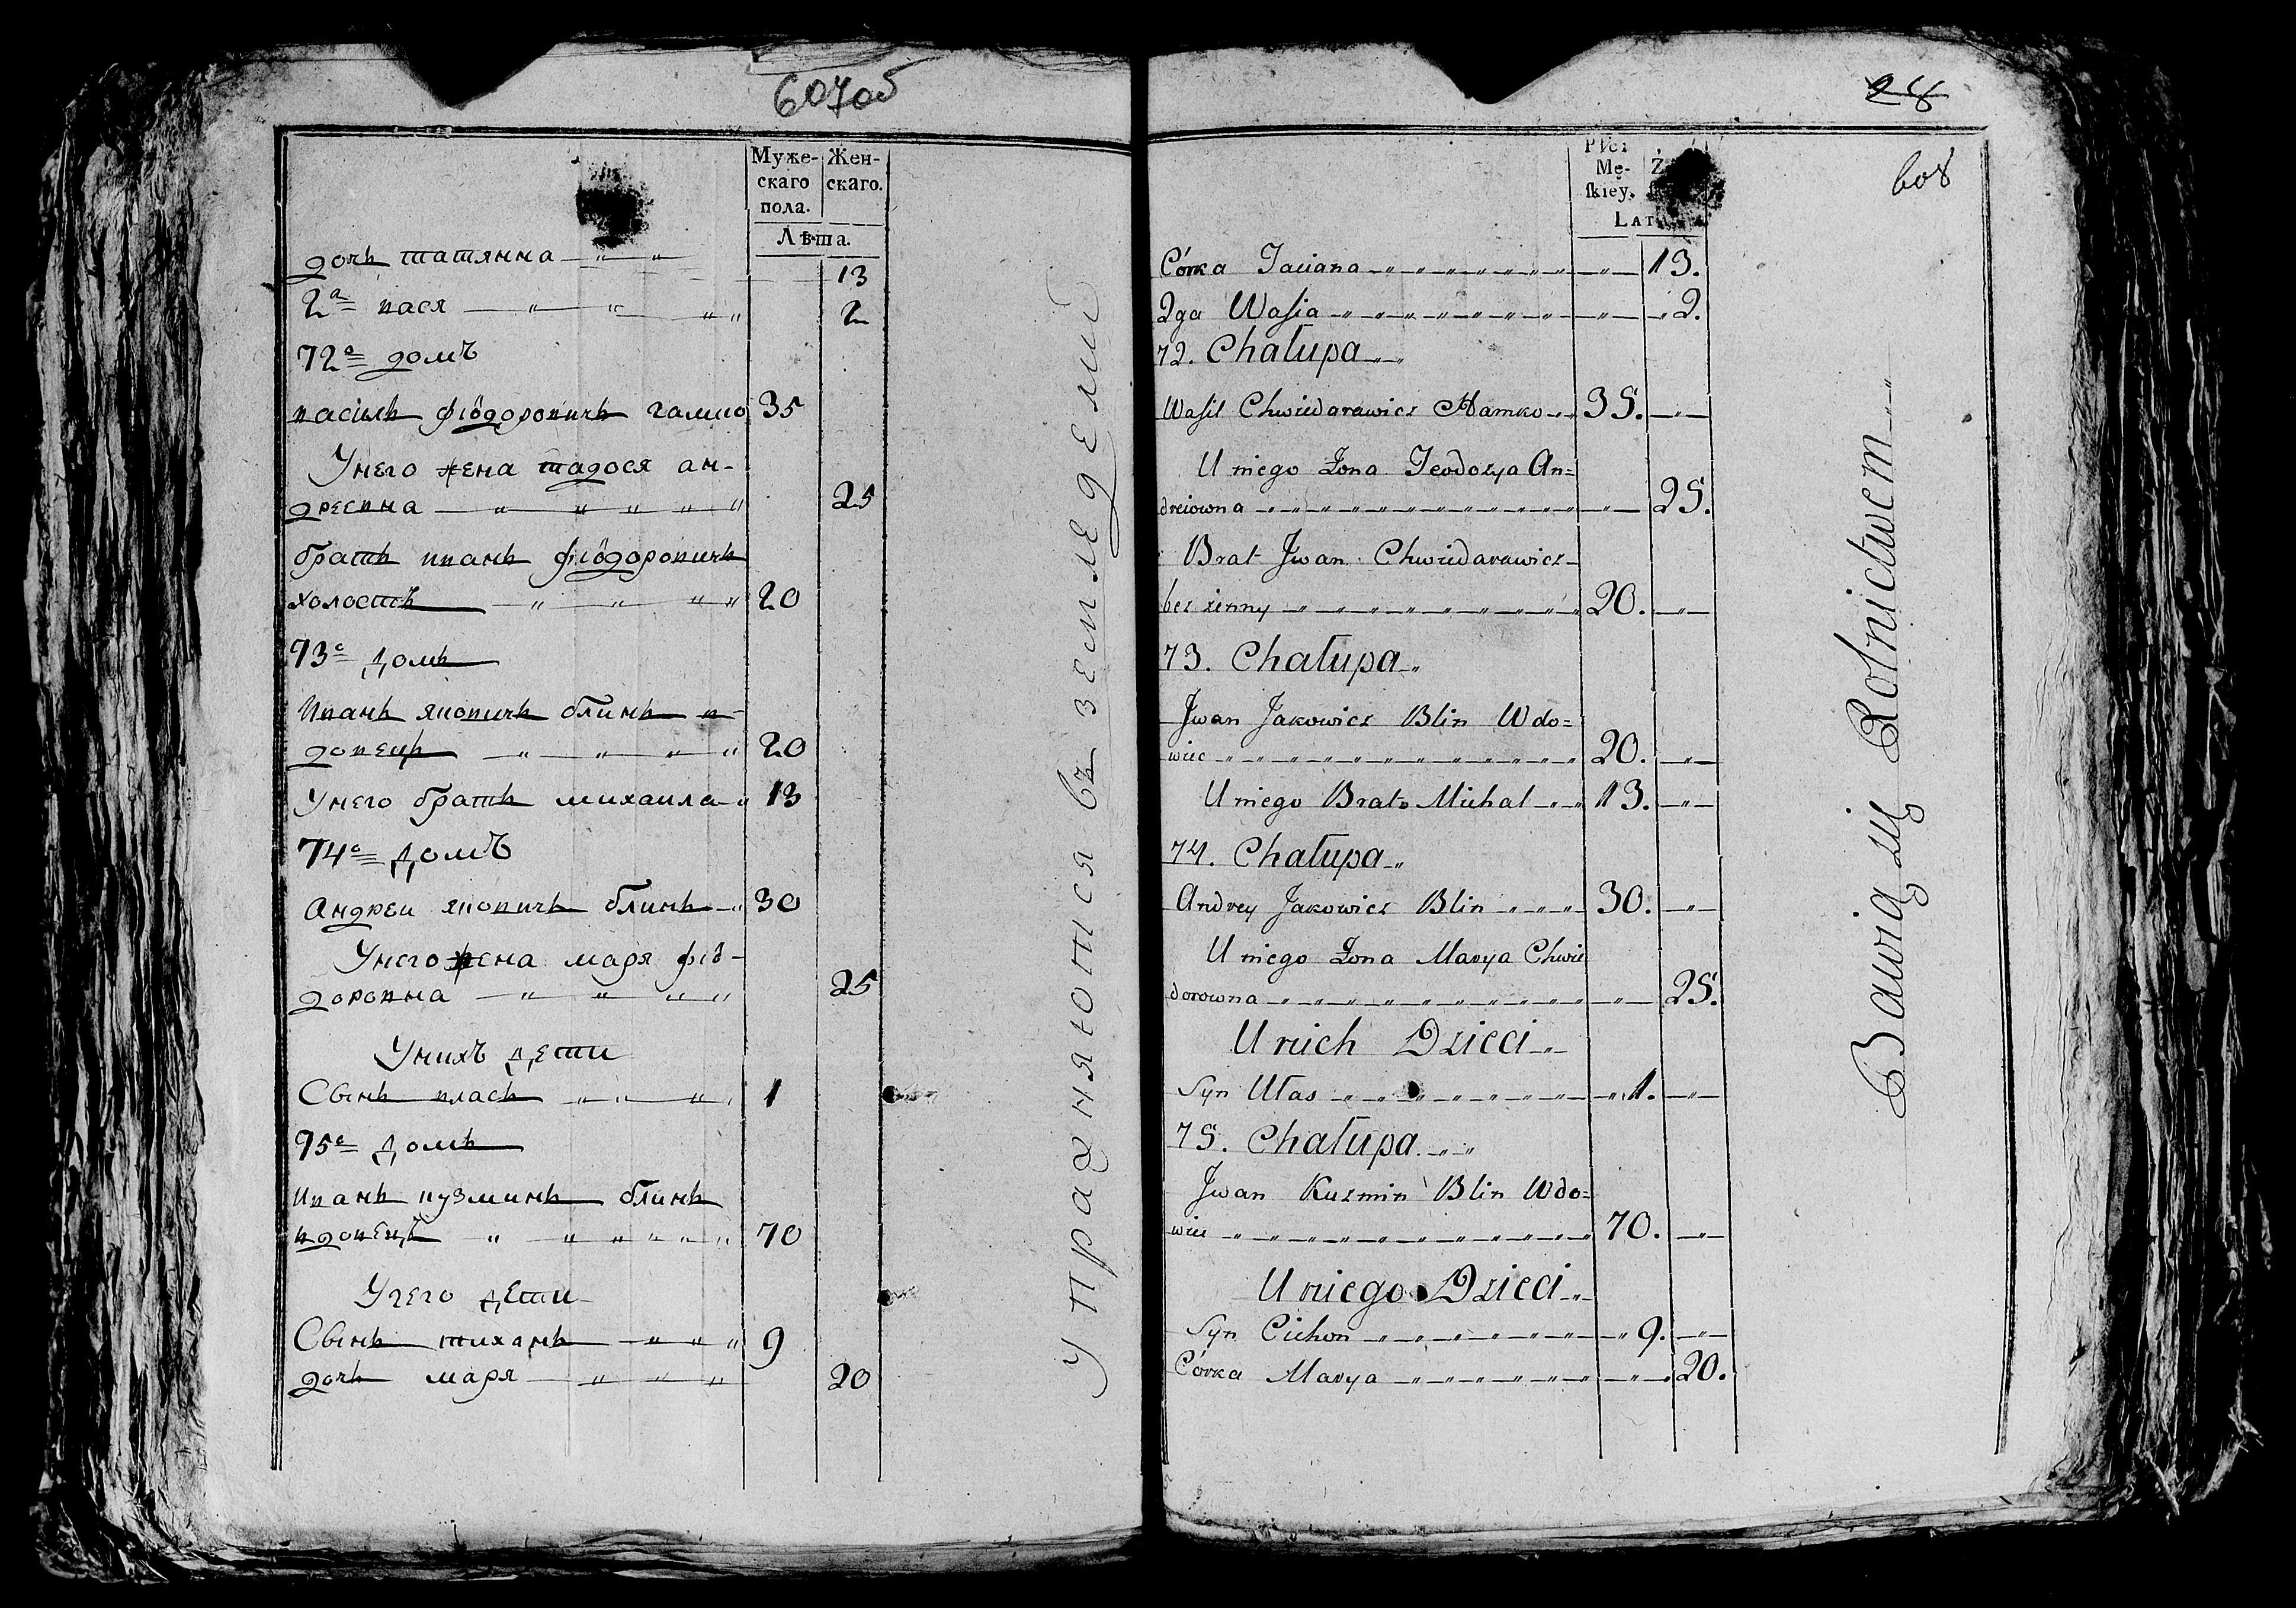 607об
Муже-
скаго
пола.
Жен-
скаго.
Лѣта.
дочь татянна 13
2а вася 2
72е домъ
василь фіодоровичь гамко 35
Унего жена тадося ан-
дреевна 25
братъ иванъ фіодоровичь
холостъ 20
73е домъ
Иванъ яковичь блинъ в-
довецъ 20
Унего братъ михаила 13
74е домъ
Андреи яковичь блинъ 30
Унего жена маря фіо-
доровна 25
Унихъ дети
Сынъ власъ 1
75е домъ
Иванъ кузминъ блинъ
вдовецъ 70
Унего дети
Сынъ тиханъ 9
дочь маря 20
Упражняютися въ земледелии
28
608
Płci
Mę-
skiey.
Ż
LAT
Córka Taciana 13.
2ga Wasia 2.
72. Chałupa
Wasil Chwiedarawicz Hamko 35.
U niego Żona Teodozya An=
dreiowna 25.
Brat Jwan Chwiedarawicz
bez żenny 20.
73. Chałupa
Jwan Jakowicz Blin Wdo=
wiec 20.
U niego Brat Michał 13.
74. Chałupa
Andrey Jakowicz Blin 30.
U niego Żona Marya Chwie
dorowna 25.
U nich Dzieci
Syn Ułas 1.
75. Chałupa
Jwan Kuzmin Blin Wdo=
wiec 70.
U niego Dzieci
Syn Cichon 9.
Córka Marya 20.
Bawią się Rolnictwem